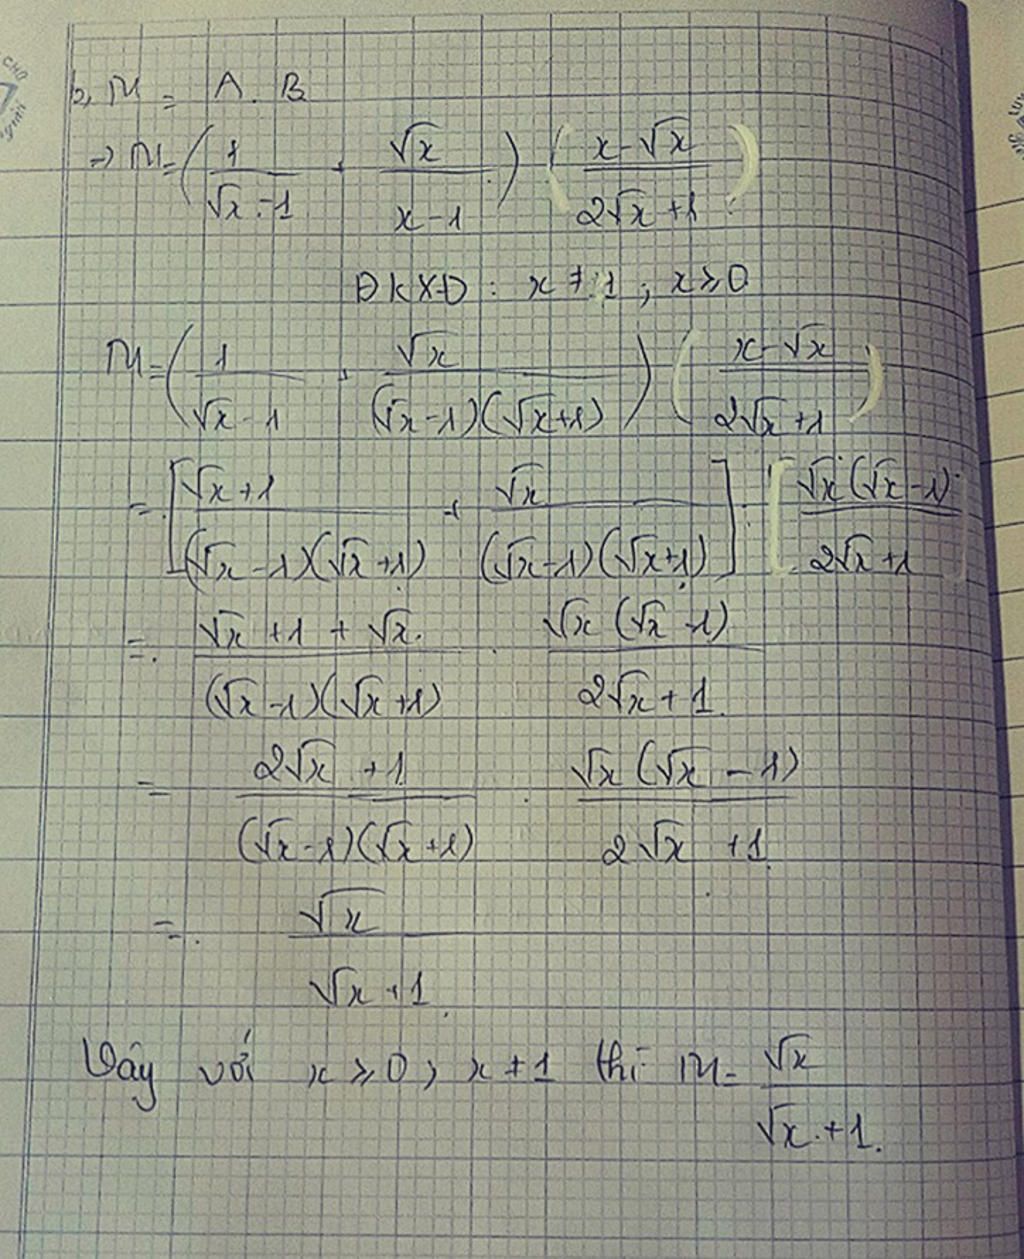 b, M = A . B
=> M = (1/(√x - 1) + √x/(x - 1)) . ((x - √x)/(2√x + 1))
ĐKXĐ : x ≠ 1 ; x ≥ 0
M = (1/(√x - 1) + √x/((√x - 1)(√x + 1))) ((x - √x)/(2√x + 1))
= [(√x + 1)/((√x - 1)(√x + 1)) + √x/((√x - 1)(√x + 1))] . [√x (√x - 1)/(2√x + 1)]
= (√x + 1 + √x)/((√x - 1)(√x + 1)) . √x (√x - 1)/(2√x + 1)
= (2√x + 1)/((√x - 1)(√x + 1)) . √x (√x - 1)/(2√x + 1)
= √x/(√x + 1)
Vậy với x ≥ 0 ; x ≠ 1 thì M = √x/(√x + 1).